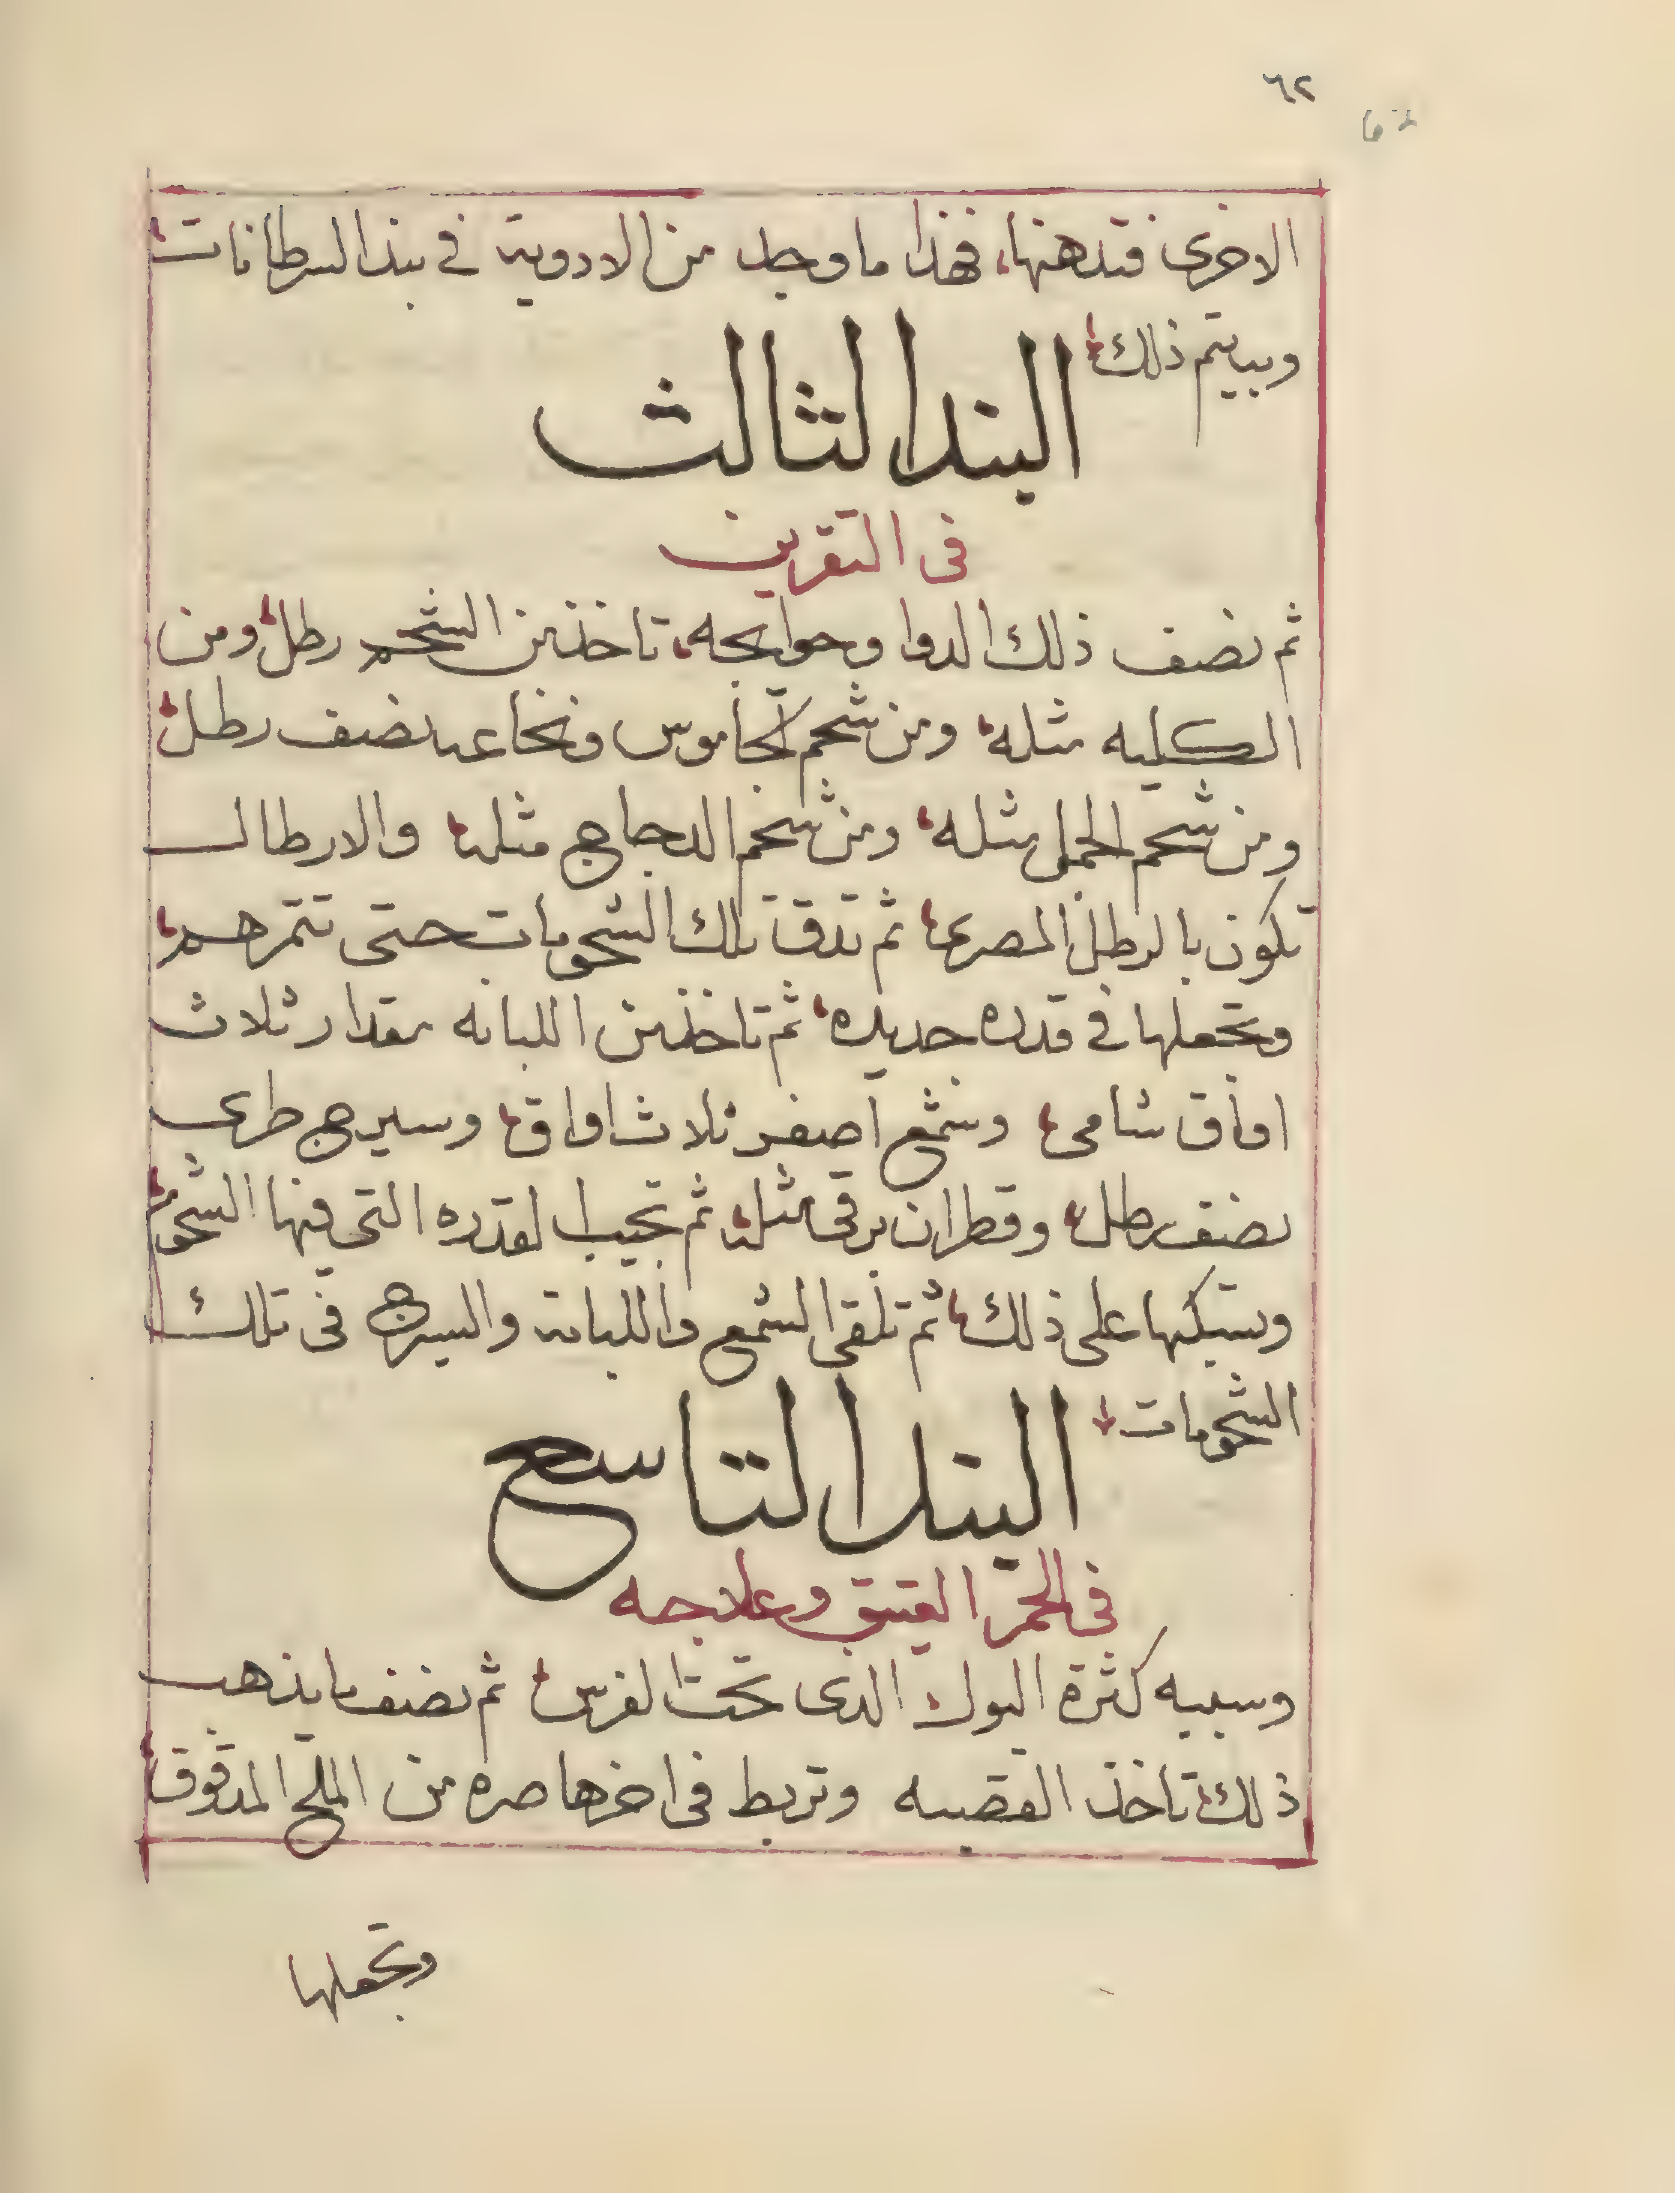 ٦٢
الاخرى فتدهنها، فهذا ما وجد من الادوية في بند السرطانات
وبيتم ذلك
البند الثالث
فى التقرين
ثم نصف ذلك الدوا وحوايجه، تاخذ من الشحم رطل ومن
الكليه مثله ومن شحم الجاموس ونخاعه نصف رطل
ومن شحم الجمل مثله ومن شحم الدجاج مثله والارطال
تكون بالرطل المصرى ثم تدق تلك الشحومات حتى تتمرهم
وتجعلها في قدره جديده ثم تاخذ من اللبانه مقدار ثلاث
اواق شامى وشمع اصفر ثلاث اواق وسيرج طرى
نصف رطل وقطران برقى مثله ثم تجيب القدره التى فيها الشحوم
وتسبكها على ذلك ثم تلقى الشمع واللبانه والسيرج فى تلك
الشحومات
البند التاسع
فى الحمر العتيق وعلاجه
وسببه كثرة البول الدى تحت الفرس ثم نصف ما يذهب
ذلك تاخذ القصبه وتربط فى اخرها صره من الملح المدقوق
وتجعلها